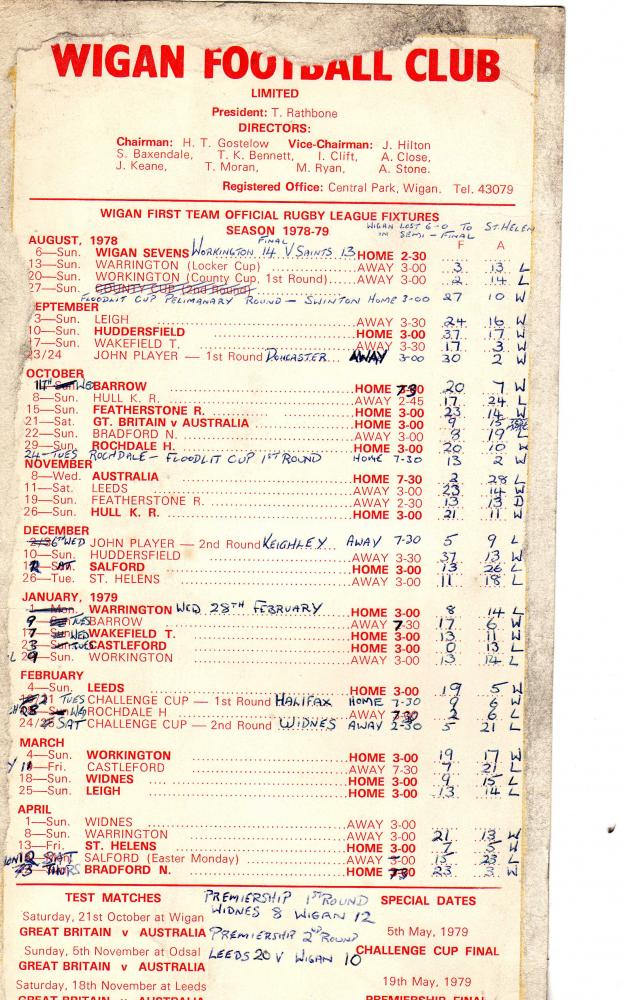 WIGAN FOOTBALL CLUB
LIMITED
President: T. Rathbone
DIRECTORS:
Chairman: H. T. Gostelow Vice-Chairman: J. Hilton
S. Baxendale, T. K. Bennett, I. Clift, A. Close,
J. Keane, T. Moran, M. Ryan, A. Stone.
Registered Office: Central Park, Wigan. Tel. 43079
WIGAN FIRST TEAM OFFICIAL RUGBY LEAGUE FIXTURES
SEASON 1978-79
WIGAN LOST 6-0 TO ST HELEN
IN SEMI-FINAL
AUGUST, 1978 F A
6—Sun. WIGAN SEVENS FINAL WORKINGTON 14 V SAINTS 13 HOME 2-30
13—Sun. WARRINGTON (Locker Cup) AWAY 3-00 3 13 L
20—Sun. WORKINGTON (County Cup, 1st Round) AWAY 3-00 2 14 L
27—Sun. COUNTY CUP (2nd Round)
FLOODLIT CUP PELIMANARY ROUND - SWINTON HOME 3-00 27 10 W
EPTEMBER
3—Sun. LEIGH AWAY 3-30 24 16 W
10—Sun. HUDDERSFIELD HOME 3-00 37 17 W
17—Sun. WAKEFIELD T. AWAY 3-30 17 3 W
23/24 JOHN PLAYER — 1st Round DONCASTER AWAY 3-00 30 2 W
OCTOBER
11TH WED BARROW HOME 7-30 20 7 W
8—Sun. HULL K. R. AWAY 2-45 17 24 L
15—Sun. FEATHERSTONE R. HOME 3-00 23 14 W
21—Sat. GT. BRITAIN v AUSTRALIA HOME 3-00 9 15
22—Sun. BRADFORD N. AWAY 3-00 8 19 L
29—Sun. ROCHDALE H. HOME 3-00 20 10 W
24-TUES ROCHDALE - FLOODLIT CUP 1ST ROUND HOME 7-30 13 2 W
NOVEMBER
8—Wed. AUSTRALIA HOME 7-30 2 28 L
11—Sat. LEEDS AWAY 3-00 23 14 W
19—Sun. FEATHERSTONE R. AWAY 2-30 13 13 D
26—Sun. HULL K. R. HOME 3-00 21 11 W
DECEMBER
6TH WED JOHN PLAYER — 2nd Round KEIGHLEY AWAY 7-30 5 9 L
10—Sun. HUDDERSFIELD AWAY 3-30 37 13 W
SAT SALFORD HOME 3-00 13 26 L
26—Tue. ST. HELENS AWAY 3-00 11 18 L
JANUARY, 1979
1—Mon. WARRINGTON WED 28TH FEBRUARY HOME 3-00 8 14 L
9 TUES BARROW AWAY 7-30 17 6 W
17 WED WAKEFIELD T. HOME 3-00 13 11 W
TUES CASTLEFORD HOME 3-00 0 13 L
Sun. WORKINGTON AWAY 3-00 13 14 L
FEBRUARY
4—Sun. LEEDS HOME 3-00 19 5 W
TUES CHALLENGE CUP — 1st Round HALIFAX HOME 7-30 9 6 W
ROCHDALE H AWAY 7-30 2 6 L
24/25 SAT CHALLENGE CUP — 2nd Round WIDNES AWAY 2-30 5 21 L
MARCH
4—Sun. WORKINGTON HOME 3-00 19 17 W
Fri. CASTLEFORD AWAY 7-30 7 21 L
18—Sun. WIDNES HOME 3-00 9 15 L
25—Sun. LEIGH HOME 3-00 13 14 L
APRIL
1—Sun. WIDNES AWAY 3-00
8—Sun. WARRINGTON AWAY 3-00 21 13 W
13—Fri. ST. HELENS HOME 3-00 7 5 W
SALFORD (Easter Monday) AWAY 3-00 15 23 L
THURS BRADFORD N. HOME 7-30 23 3 W
TEST MATCHES PREMIERSHIP 1ST ROUND SPECIAL DATES
Saturday, 21st October at Wigan WIDNES 8 WIGAN 12
GREAT BRITAIN v AUSTRALIA PREMIERSHIP 2ND ROUND 5th May, 1979
Sunday, 5th November at Odsal LEEDS 20 V WIGAN 10 CHALLENGE CUP FINAL
GREAT BRITAIN v AUSTRALIA
Saturday, 18th November at Leeds 19th May, 1979
GREAT BRITAIN v AUSTRALIA PREMIERSHIP FINAL